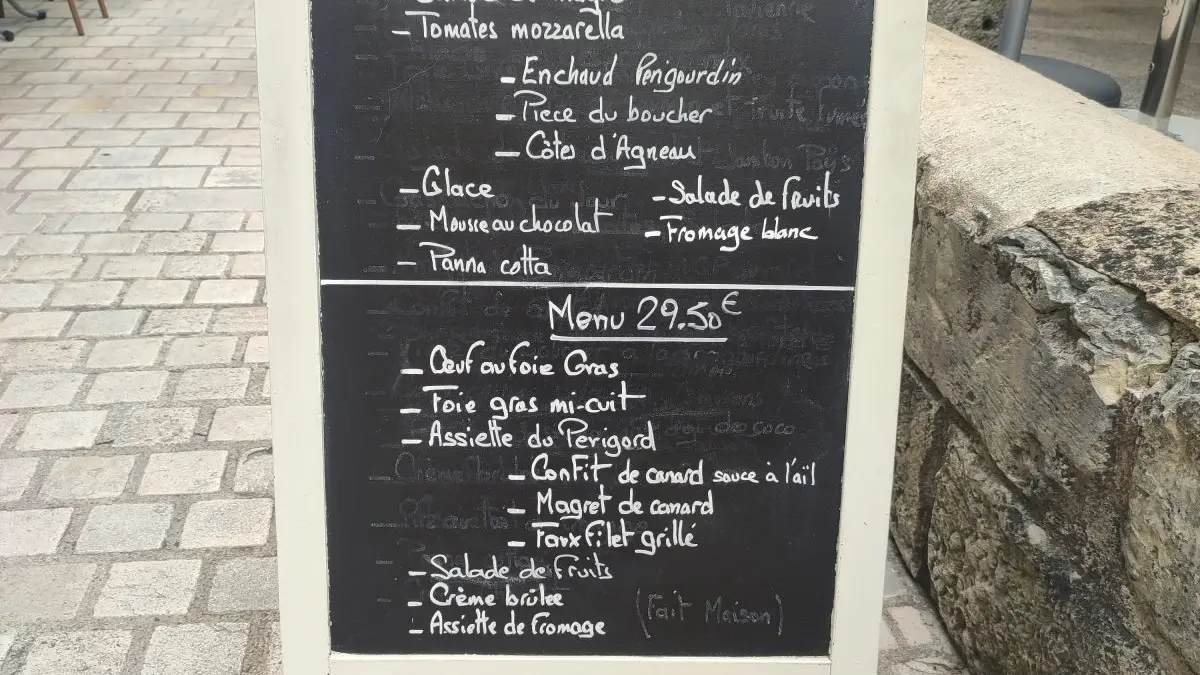 – Tomates mozzarella
– Enchaud Périgourdin
– Piece du boucher
– Côtes d'Agneau
– Glace – Salade de fruits
– Mousse au chocolat – Fromage blanc
– Panna cotta
Menu 29.50€
– Œuf au foie Gras
– Foie gras mi-cuit
– Assiette du Périgord
– Confit de canard sauce à l'aïl
– Magret de canard
– Faux filet grillé
– Salade de fruits
– Crème brûlée
– Assiette de fromage (Fait Maison)